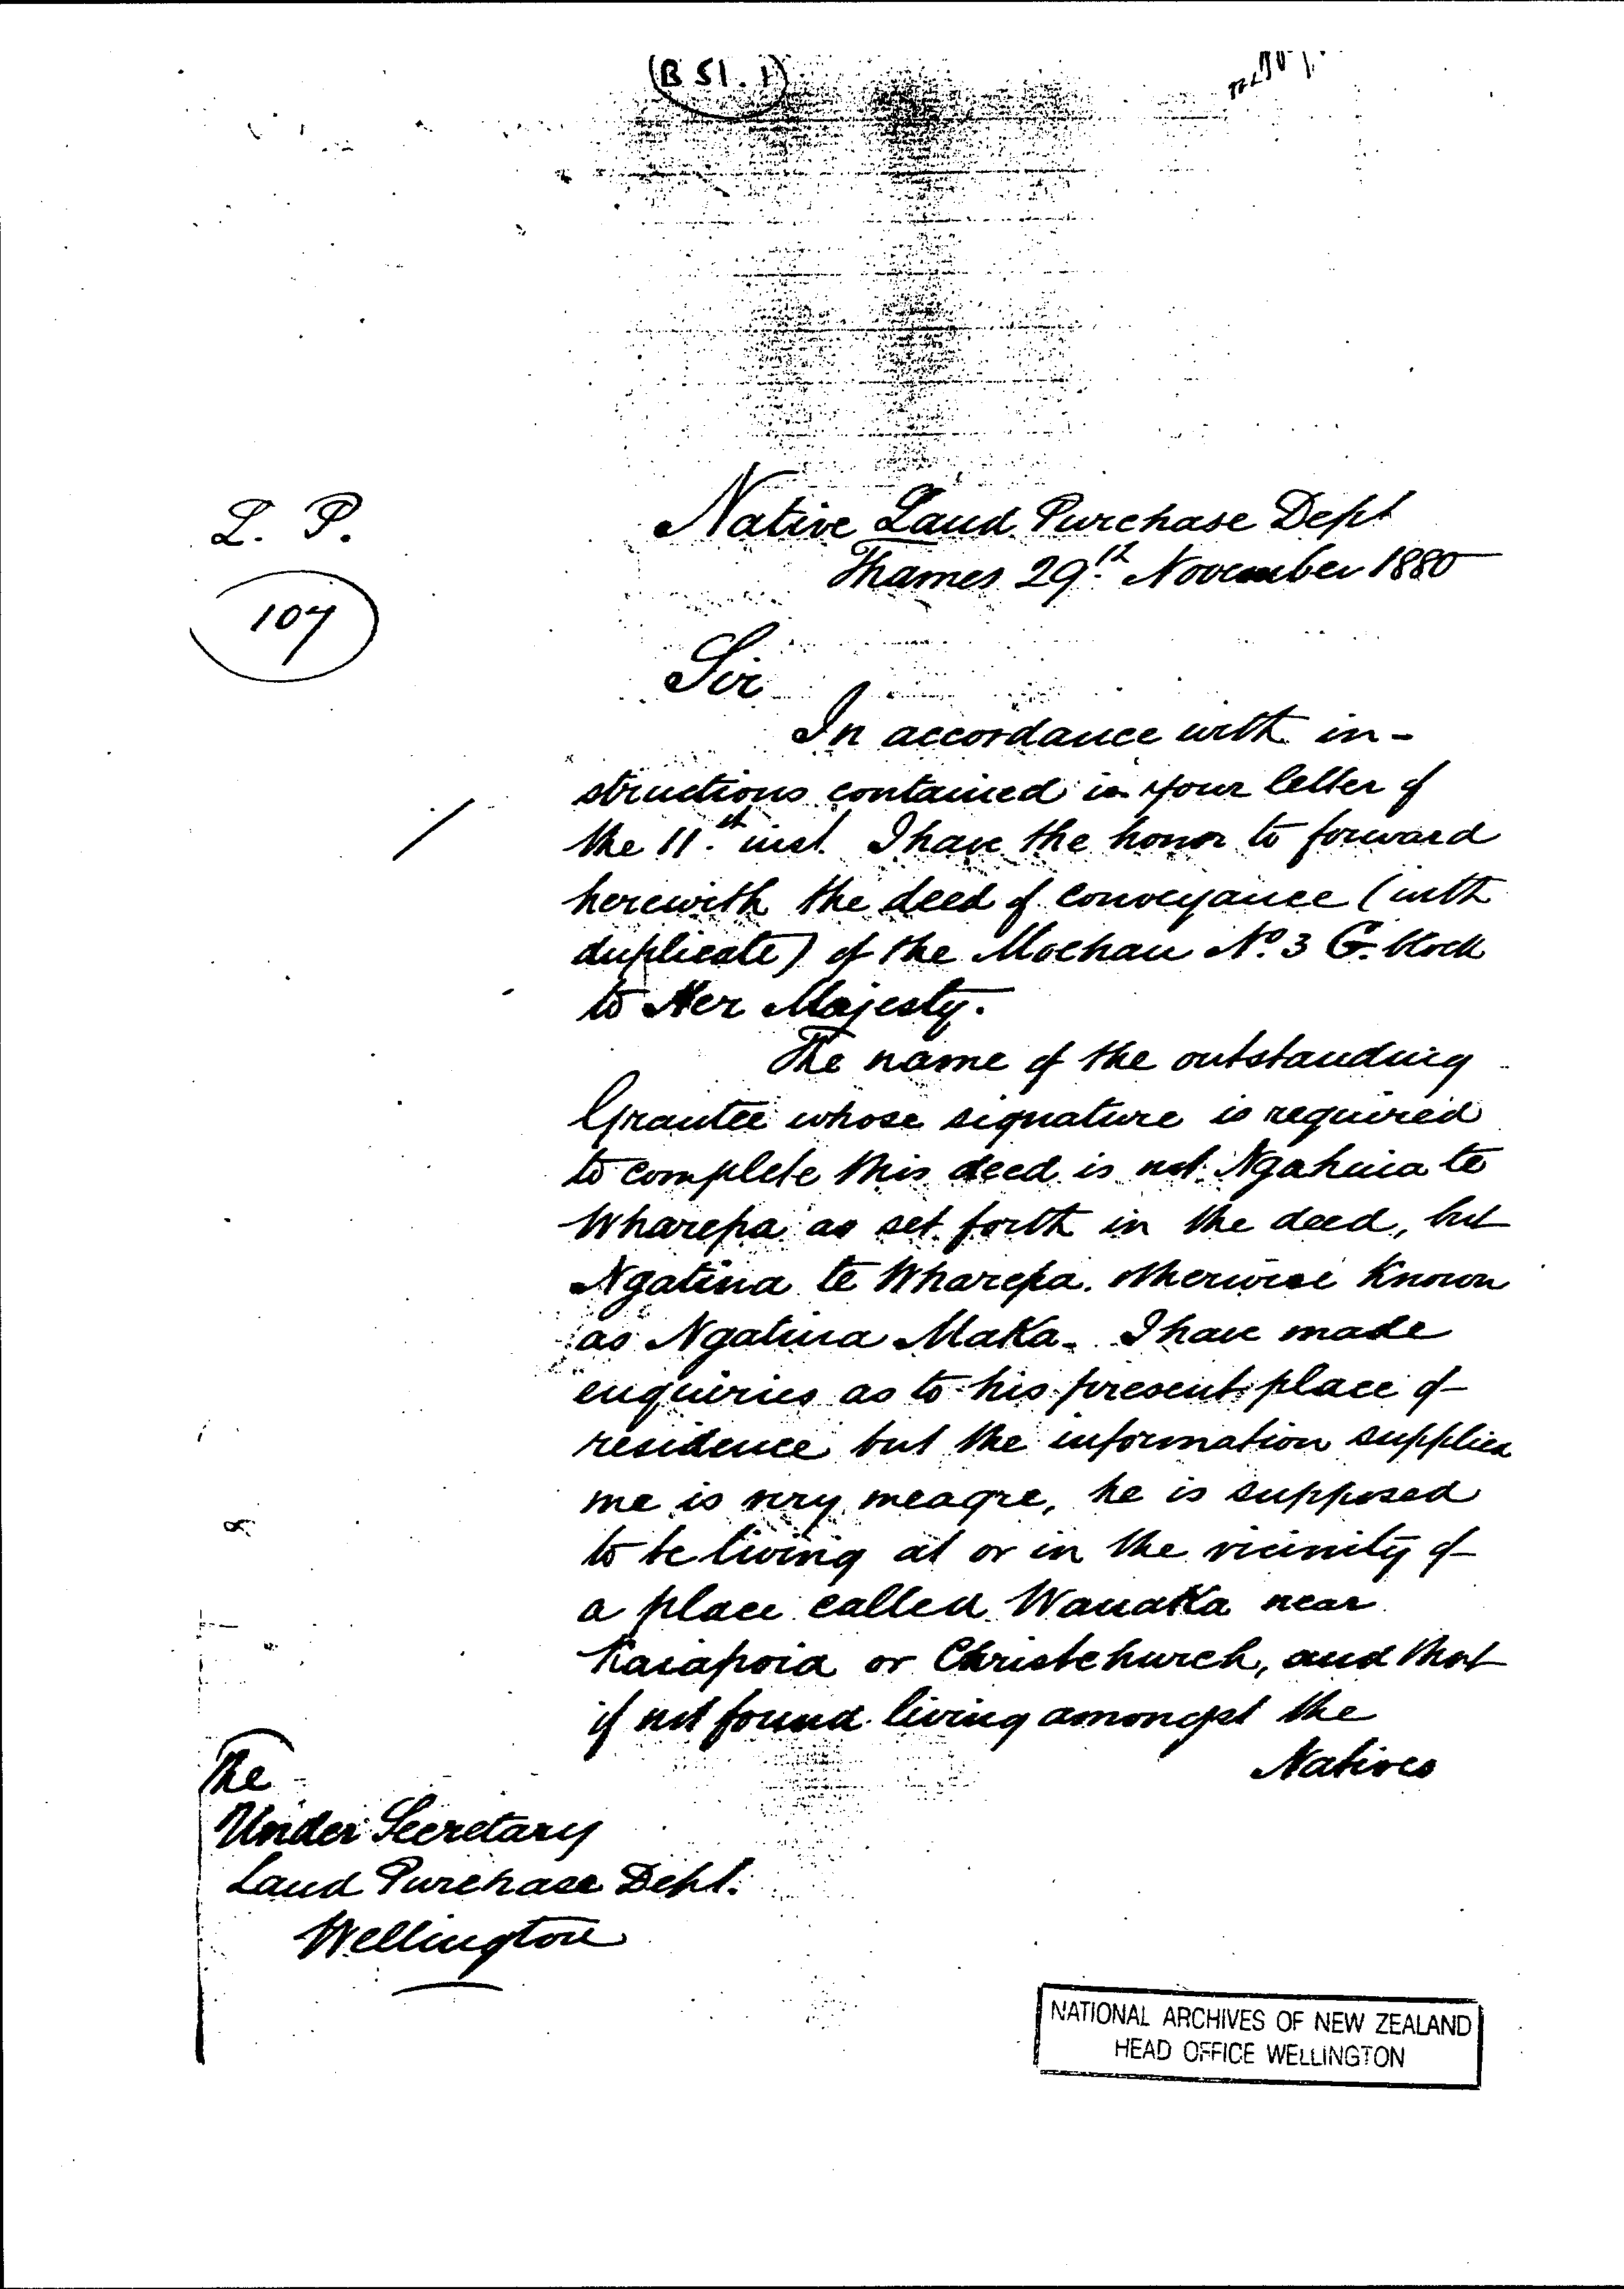 (B 51. 1)
L. P.
107
Native Land Purchase Dept
Thames 29th November 1880
Sir
In accordance with in-
structions contained in your letter of
the 11th inst. I have the honor to forward
herewith the deed of conveyance (with
duplicate) of the Moehau No. 3 G. block
to Her Majesty.
The name of the outstanding
Grantee whose signature is required
to complete this deed is not Ngahina te
Wharepa as set forth in the deed, but
Ngatina te Wharepa. otherwise Known
as Ngatina Maka. I have made
enquiries as to his present place of
residence but the information supplied
me is very meagre, he is supposed
to be living at or in the vicinity of
a place called Wanaka near
Kaiapoia or Christchurch, and that
if not found living amongst the
Natives
The
Under Secretary
Land Purchase Dept.
Wellington
NATIONAL ARCHIVES OF NEW ZEALAND
HEAD OFFICE WELLINGTON